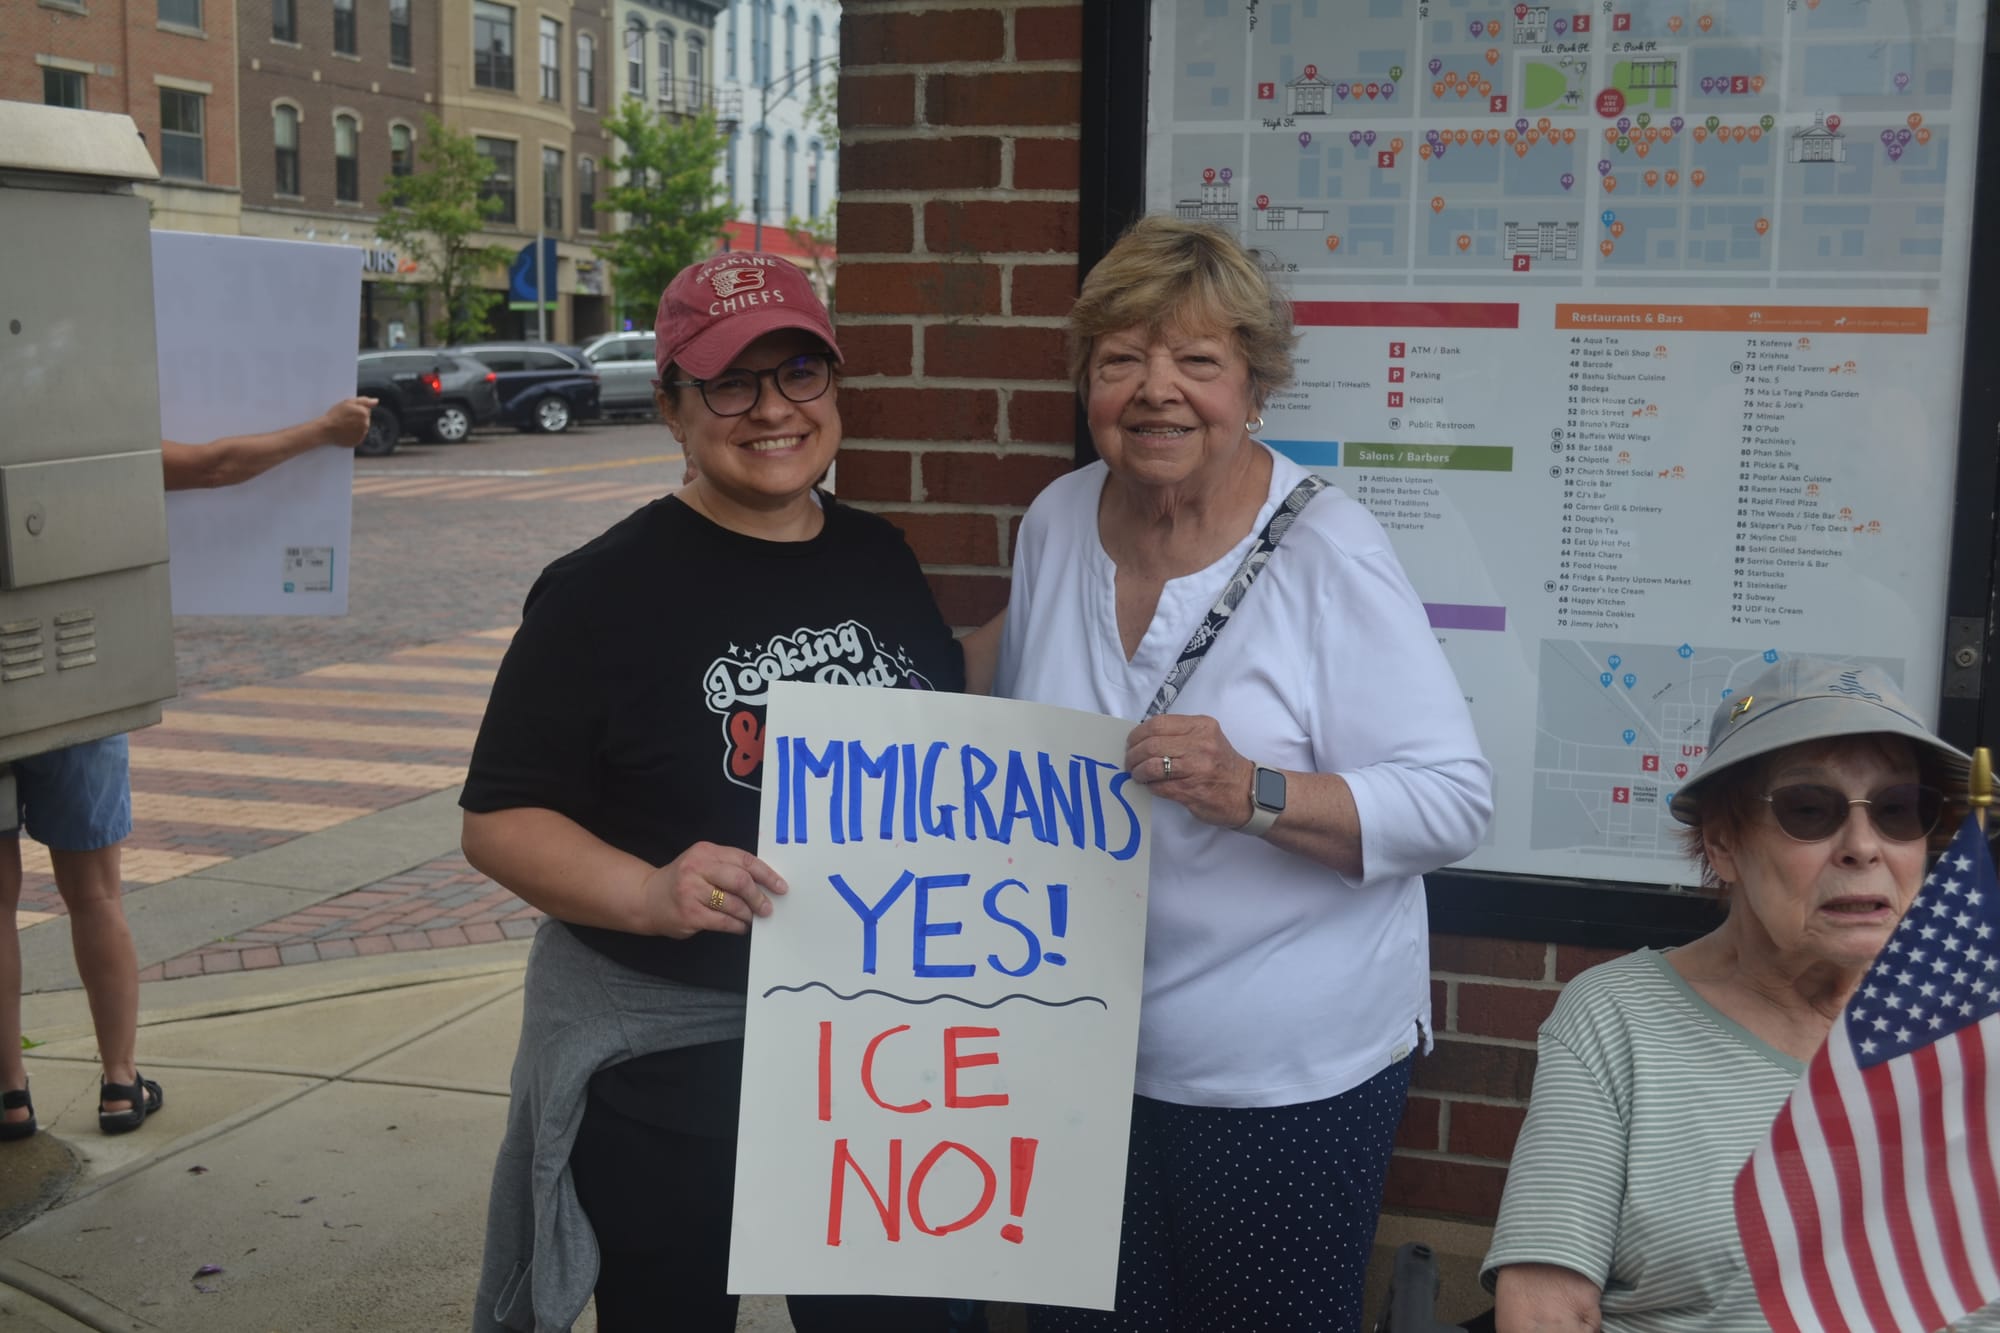 SPOKANE
S
CHIEFS
Looking
Out
&
IMMIGRANTS
YES!
ICE
NO!
OURS
W. Park Pl.
E. Park Pl.
High St.
YOU ARE HERE!
ATM / Bank
P Parking
H Hospital
Public Restroom
Hospital | TriHealth
Arts Center
Salons / Barbers
19 Attitudes Uptown
20 Bowtie Barber Club
21 Faded Traditions
Temple Barber Shop
Signature
Restaurants & Bars
46 Aqua Tea
47 Bagel & Deli Shop
48 Barcode
49 Bashu Sichuan Cuisine
50 Bodega
51 Brick House Cafe
52 Brick Street
53 Bruno's Pizza
54 Buffalo Wild Wings
55 Bar 1868
56 Chipotle
57 Church Street Social
58 Circle Bar
59 CJ's Bar
60 Corner Grill & Drinkery
61 Doughby's
62 Drop In Tea
63 Eat Up Hot Pot
64 Fiesta Charra
65 Food House
66 Fridge & Pantry Uptown Market
67 Graeter's Ice Cream
68 Happy Kitchen
69 Insomnia Cookies
70 Jimmy John's
71 Kofenya
72 Krishna
73 Left Field Tavern
74 No. 5
75 Ma La Tang Panda Garden
76 Mac & Joe's
77 Mimian
78 O'Pub
79 Pachinko's
80 Phan Shin
81 Pickle & Pig
82 Poplar Asian Cuisine
83 Ramen Hachi
84 Rapid Fired Pizza
85 The Woods / Side Bar
86 Skipper's Pub / Top Deck
87 Skyline Chili
88 SoHi Grilled Sandwiches
89 Sorriso Osteria & Bar
90 Starbucks
91 Steinkeller
92 Subway
93 UDF Ice Cream
94 Yum Yum
UPT
TOLLGATE
SHOPPING
CENTER